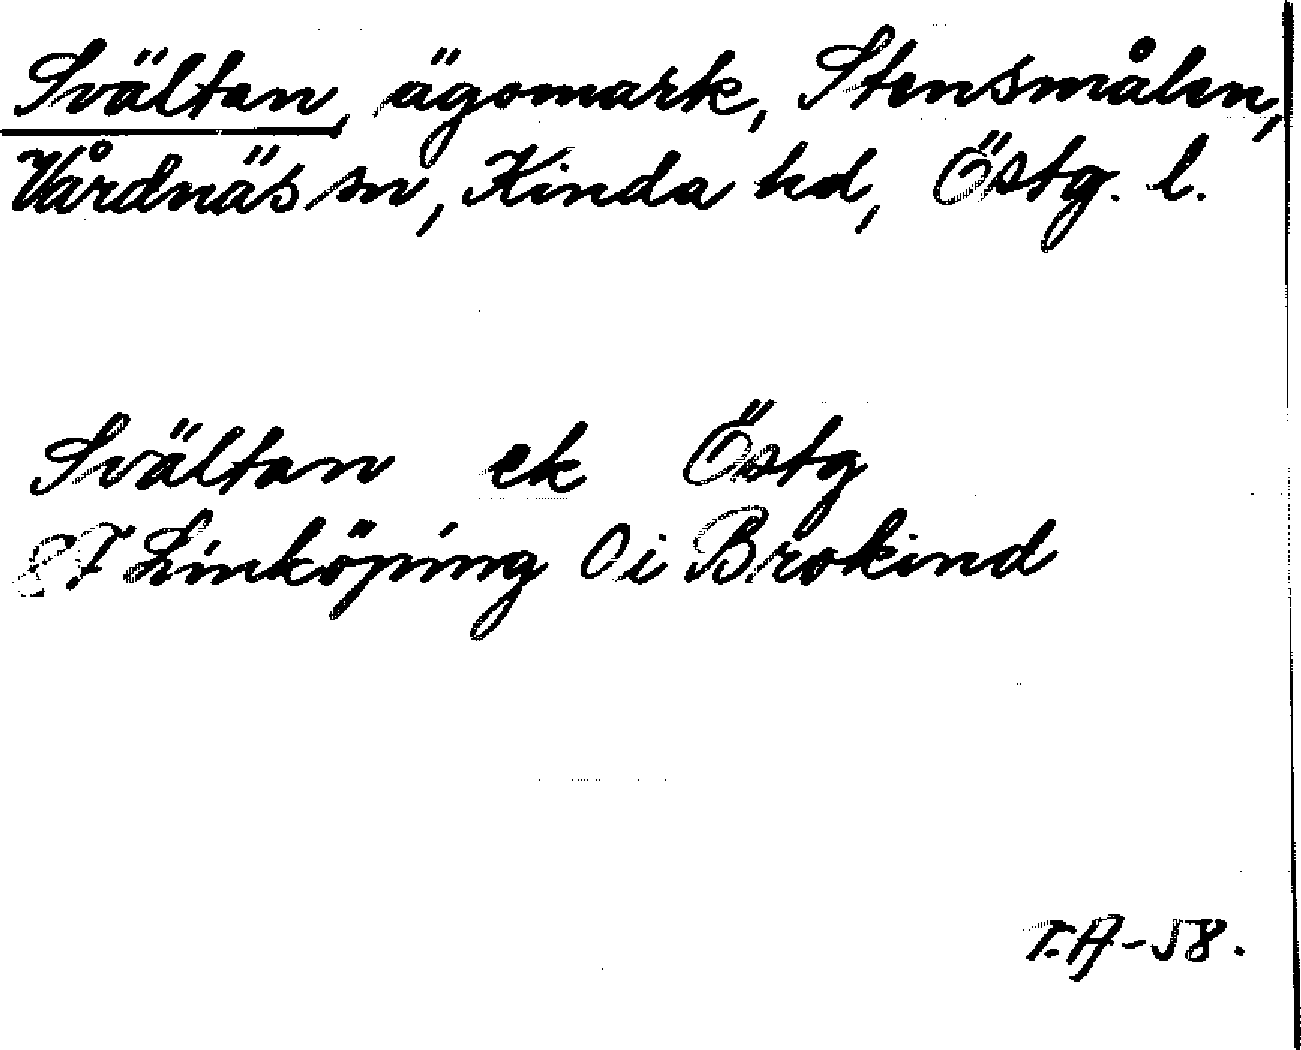 Svältan, ägomark, Stensmålen,
Vårdnäs sn, Kinda hd, Östg. l.
Svältan ek Östg
8F Linköping 0 i Brokind
T.A-58.